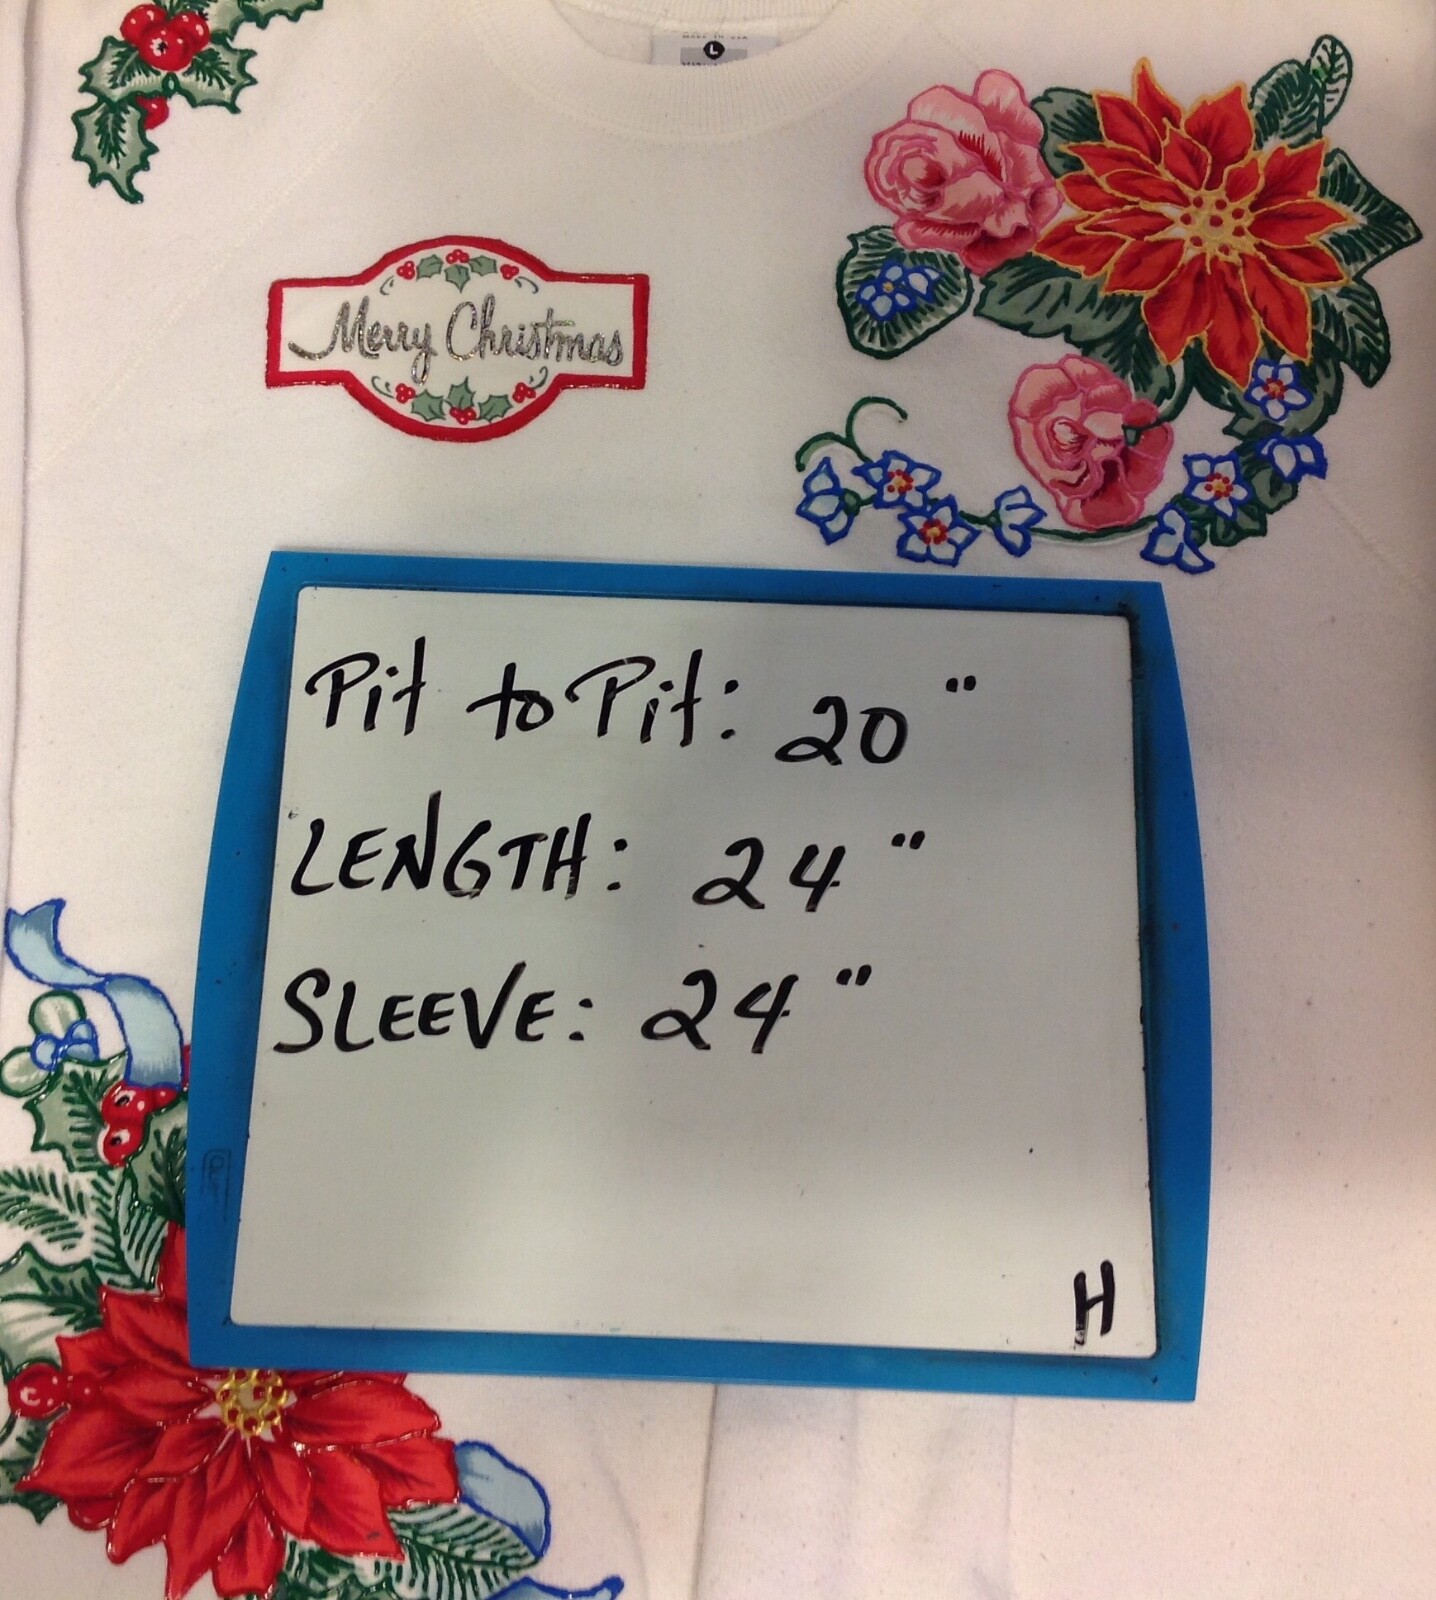 L
Merry Christmas
Pit to Pit: 20"
LENGTH: 24"
SLEEVE: 24"
H